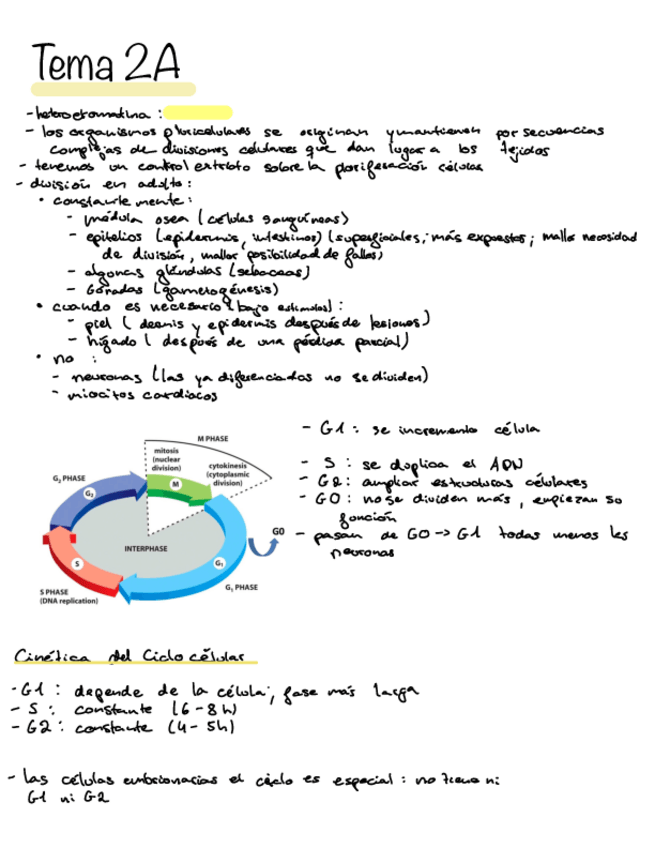 Tema 2A
- heterocromatina :
- los organismos pluricelulares se originan y mantienen por secuencias
complejas de divisiones celulares que dan lugar a los tejidos
- tenemos un control estricto sobre la proliferación células
- división en adulto :
• constantemente :
- médula osea (células sanguíneas)
- epitelios (epidermis, intestinos) (superficiales, más expuestos; mallor necesidad
de división, mallor posibilidad de fallos)
- algunas glándulas (sebaceas)
- Gónadas (gametogénesis)
• cuando es necesario (bajo estimulos) :
- piel ( dermis y epidermis después de lesiones)
- hígado ( después de una pérdida parcial)
• no :
- neuronas (las ya diferenciadas no se dividen)
- miocitos cardiacos
M PHASE
mitosis
(nuclear
division)
cytokinesis
(cytoplasmic
division)
M
G₂ PHASE
G₂
INTERPHASE
G0
S
G₁
S PHASE
(DNA replication)
G₁ PHASE
- G1 : se incrementa célula
- S : se duplica el ADN
- G2 : ampliar estructuras célulares
- G0 : no se dividen más, empiezan su
función
- pasan de G0 -> G1 todas menos las
neuronas
Cinética del Ciclo célular
- G1 : depende de la célula, fase más larga
- S : constante (6 - 8 h)
- G2 : constante (4 - 5h)
- las células embrionarias el ciclo es especial : no tiene ni
G1 ni G2